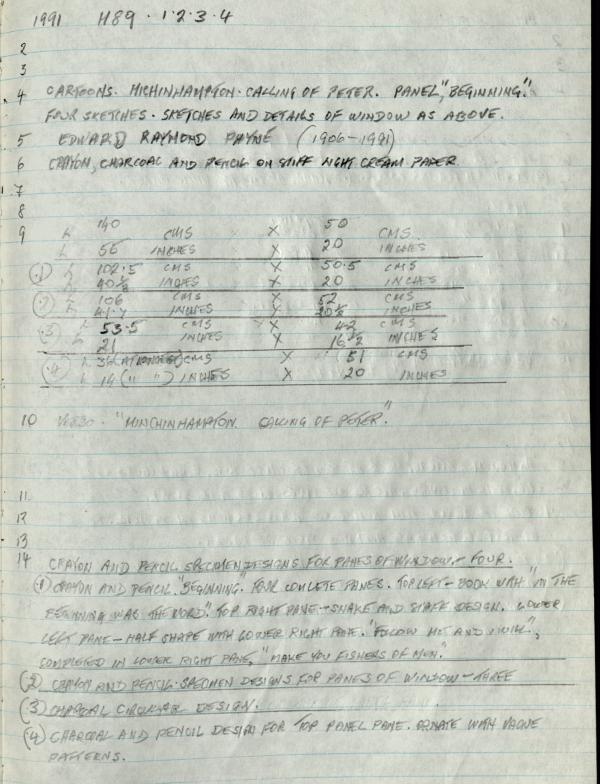 1991 H89 · 1·2·3·4
2
3
4 CARTOONS. MICHINHAMPTON. CALLING OF PETER. PANEL, "BEGINNING."
FOUR SKETCHES. SKETCHES AND DETAILS OF WINDOW AS ABOVE.
5 EDWARD RAYMOND PAYNE (1906-1991)
6 CRAYON, CHARCOAL AND PENCIL ON STIFF LIGHT CREAM PAPER
7
8
9 h 140 CMS X 50 CMS.
h 56 INCHES X 20 INCHES
(1) h 102.5 CMS X 50.5 CMS
h 40½ INCHES X 20 INCHES
(2) h 106 CMS X 52 CMS
h 41.7 INCHES X 20½ INCHES
(3) h 53.5 CMS X 42 CMS
h 21 INCHES X 16½ INCHES
(4) h 36 CMS X 51 CMS
h 14 (" ") INCHES X 20 INCHES
10 "MINCHINHAMPTON. CALLING OF PETER."
11
12
13
14 CRAYON AND PENCIL SPECIMEN DESIGNS FOR PANES OF WINDOW - FOUR.
(1) CRAYON AND PENCIL. "BEGINNING." FOUR COMLETE PANES. TOP LEFT - BOOK WITH "IN THE
BEGINNING WAS THE WORD." TOP RIGHT PANE - SNAKE AND STAFF DESIGN. LOWER
LEFT PANE - HALF SHAPE WITH LOWER RIGHT PANE. "FOLLOW ME AND I WILL",
COMPLETED IN LOWER RIGHT PANE, "MAKE YOU FISHERS OF MEN."
(2) CRAYON AND PENCIL. SPECIMEN DESIGNS FOR PANES OF WINDOW - THREE
(3) CHARCOAL CIRCULAR DESIGN.
(4) CHARCOAL AND PENCIL DESIGN FOR TOP PANEL PANE. ORNATE WITH VAGUE
PATTERNS.